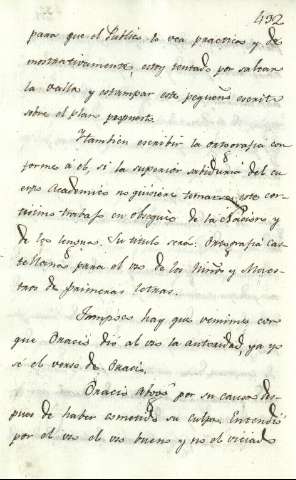 432
para que el Público lo vea practica y de
mostrativamente, estoy tentado por saltar
la valla y estampar este pequeño escrito
sobre el plan propuesto.
Tambien escribir la ortografia con
forme á el, si la superior sabiduria del cu
erpo Academico no quisiere tomarse este cor
tisimo trabajo en obsequio de la Nacion y
de los lenguas. Su titulo será: Ortografia Cas
tellana para el uso de los Niños y Maes
tros de primeras letras.
Tampoco hay que venirme con
que Oracio dió al uso la autoridad, ya yo
sé el verso de Oracio.
Oracio abogó por su causa des
pues de haber cometido su culpa. Entendió
por el uso el uso bueno y no el viciado